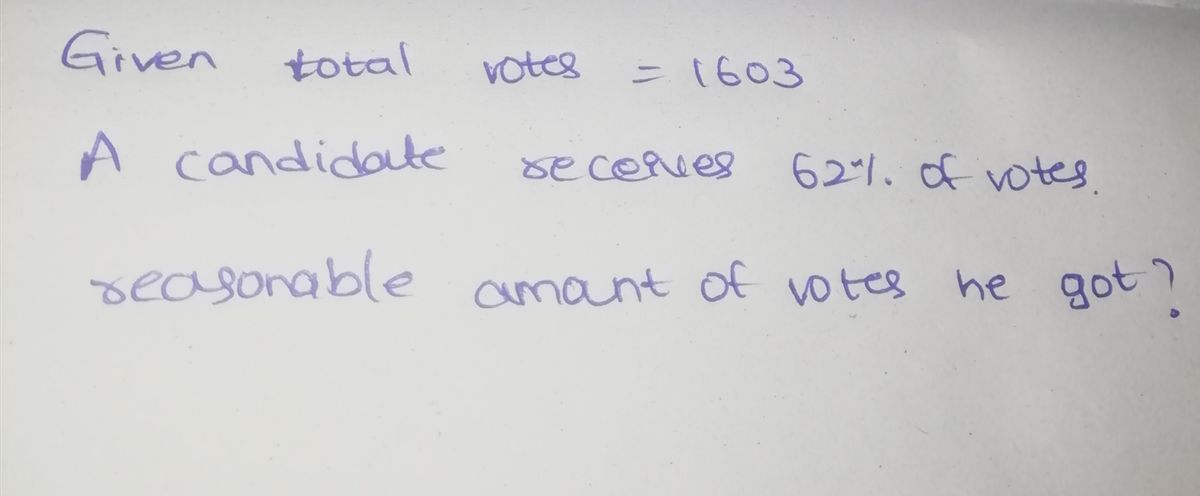 Given total votes = 1603
A candidate receives 62% of votes.
reasonable amount of votes he got?